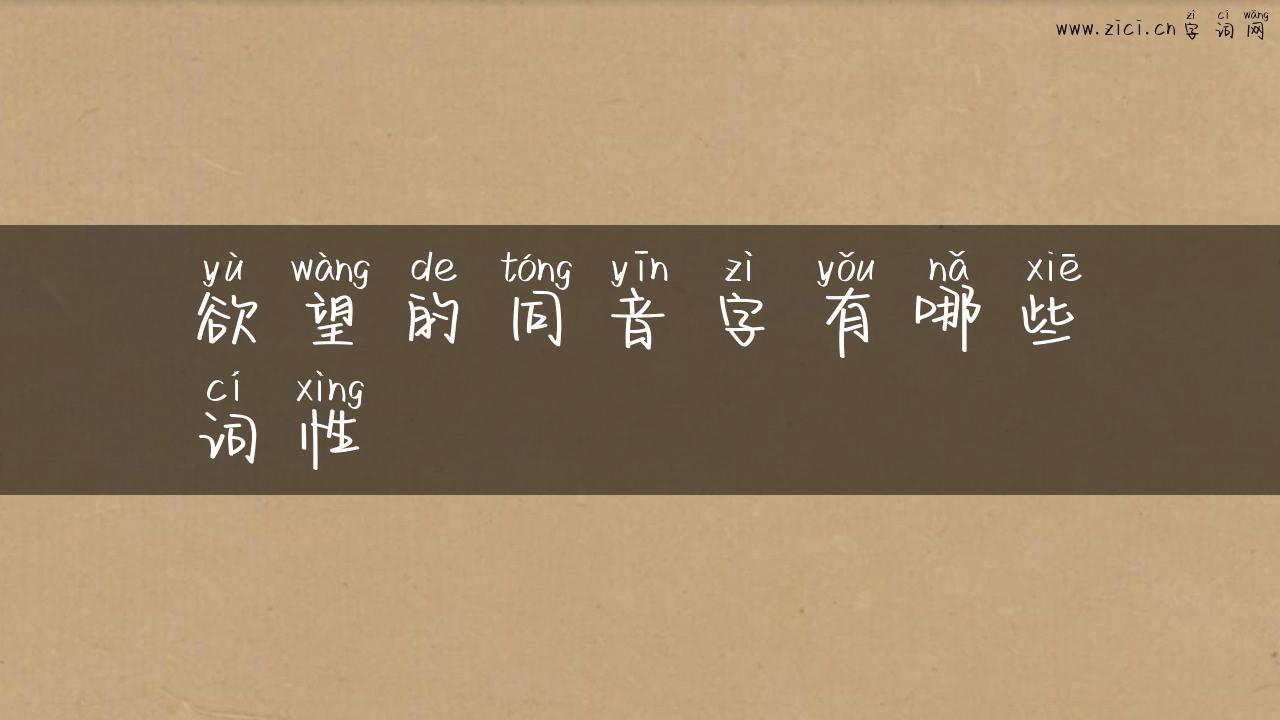 zì cí wǎng
www.zici.cn 字词网
yù wàng de tóng yīn zì yǒu nǎ xiē
欲望的同音字有哪些
cí xìng
词性